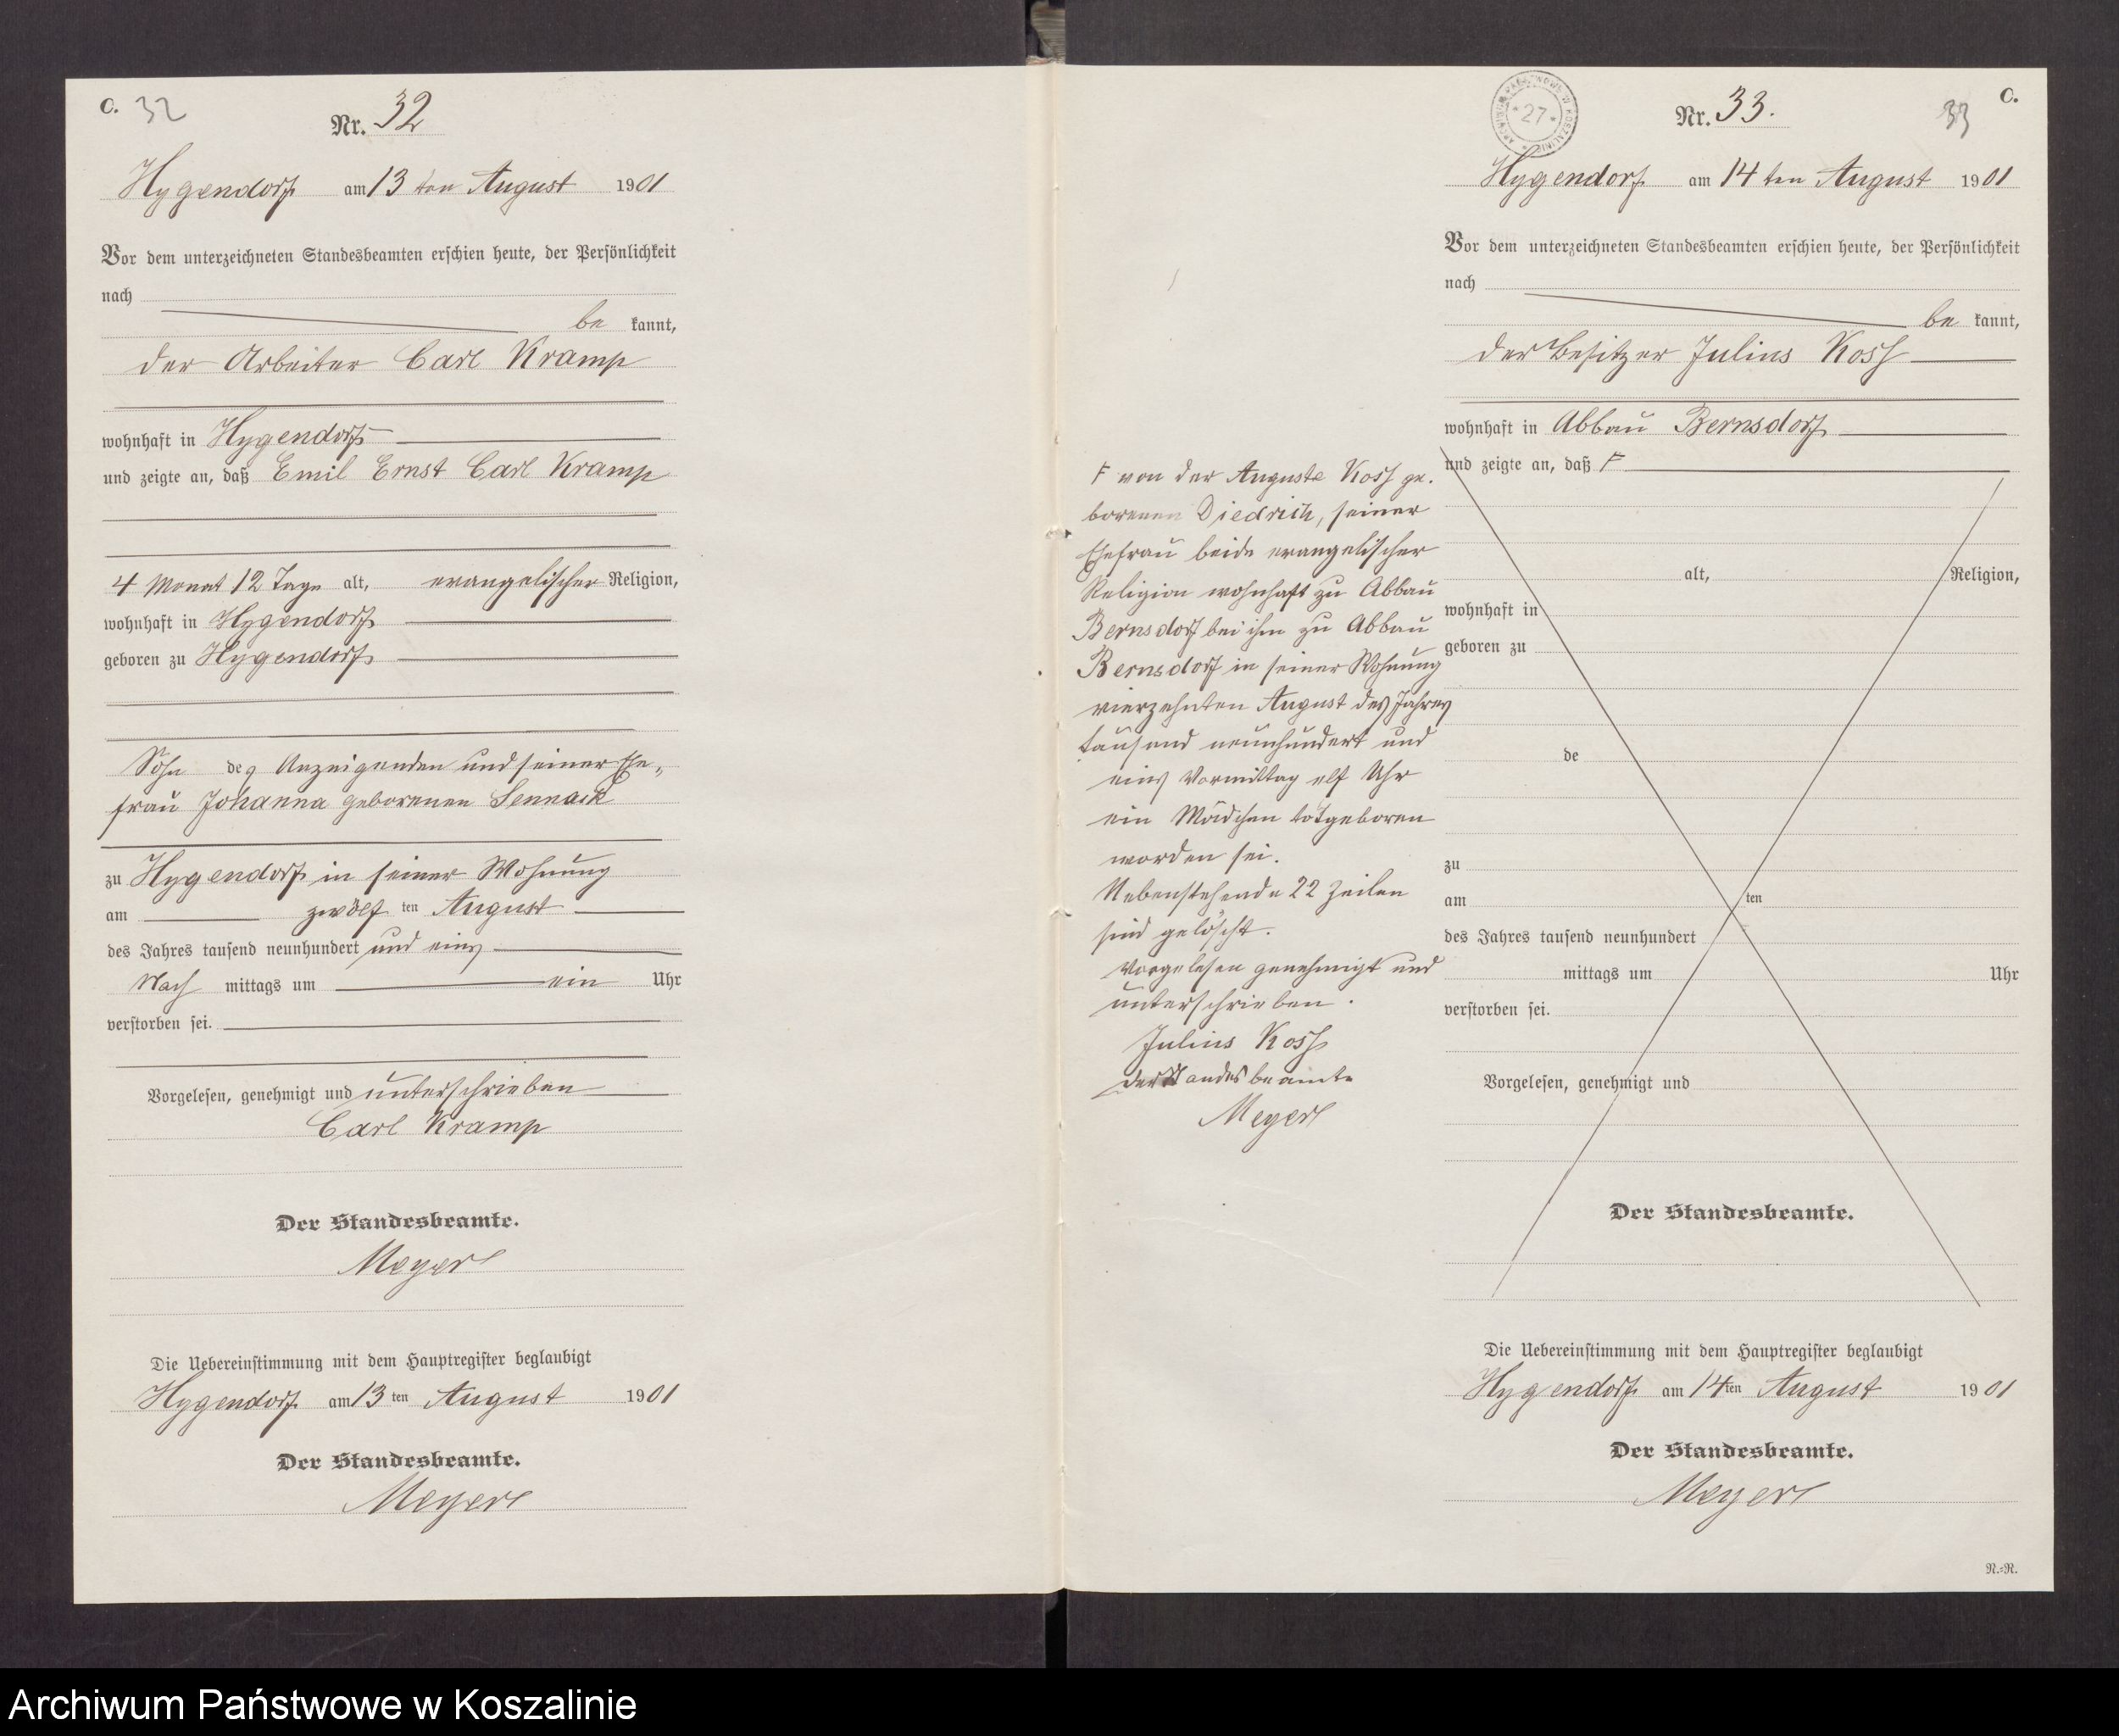 C. 32
Nr. 32
Hygendorf am 13 ten August 1901
Vor dem unterzeichneten Standesbeamten erschien heute, der Persönlichkeit
nach
be kannt,
der Arbeiter Carl Kramp
wohnhaft in Hygendorf
und zeigte an, daß Emil Ernst Carl Kramp
4 Monat 12 Tage alt, evangelischer Religion,
wohnhaft in Hygendorf
geboren zu Hygendorf
Sohn des Anzeigenden und seiner Ehe„
frau Johanna geborenen
zu Hygendorf in seiner Wohnung
am zwölf ten August
des Jahres tausend neunhundert und eins
Nach mittags um ein Uhr
verstorben sei.
Vorgelesen, genehmigt und unterschrieben
Carl Kramp
Der Standesbeamte.
Meyer
Die Uebereinstimmung mit dem Hauptregister beglaubigt
Hygendorf am 13 ten August 1901
Der Standesbeamte.
Meyer
ARCHIWUM PAŃSTWOWE W KOSZALINIE
* 27 *
Nr. 33.
33 C.
Hygendorf am 14 ten August 1901
Vor dem unterzeichneten Standesbeamten erschien heute, der Persönlichkeit
nach
be kannt,
der Besitzer Julius Koss
wohnhaft in Abbau Bernsdorf
und zeigte an, daß F
alt, Religion,
wohnhaft in
geboren zu
de
zu
am ten
des Jahres tausend neunhundert
mittags um Uhr
verstorben sei.
Vorgelesen, genehmigt und
Der Standesbeamte.
F von der Auguste Koss ge.
borenen Diedrich, seiner
Ehefrau beide evangelischer
Religion wohnhaft zu Abbau
Bernsdorf bei ihm zu Abbau
Bernsdorf in seiner Wohnung
vierzehnten August des Jahres
tausend neunhundert und
eins Vormittag elf Uhr
ein Mädchen totgeboren
worden sei.
Nebenstehende 22 Zeilen
sind gelöscht.
Vorgelesen genehmigt und
unterschrieben.
Julius Koss
der Standesbeamte
Meyer
Die Uebereinstimmung mit dem Hauptregister beglaubigt
Hygendorf am 14 ten August 1901
Der Standesbeamte.
Meyer
N.=R.
Archiwum Państwowe w Koszalinie